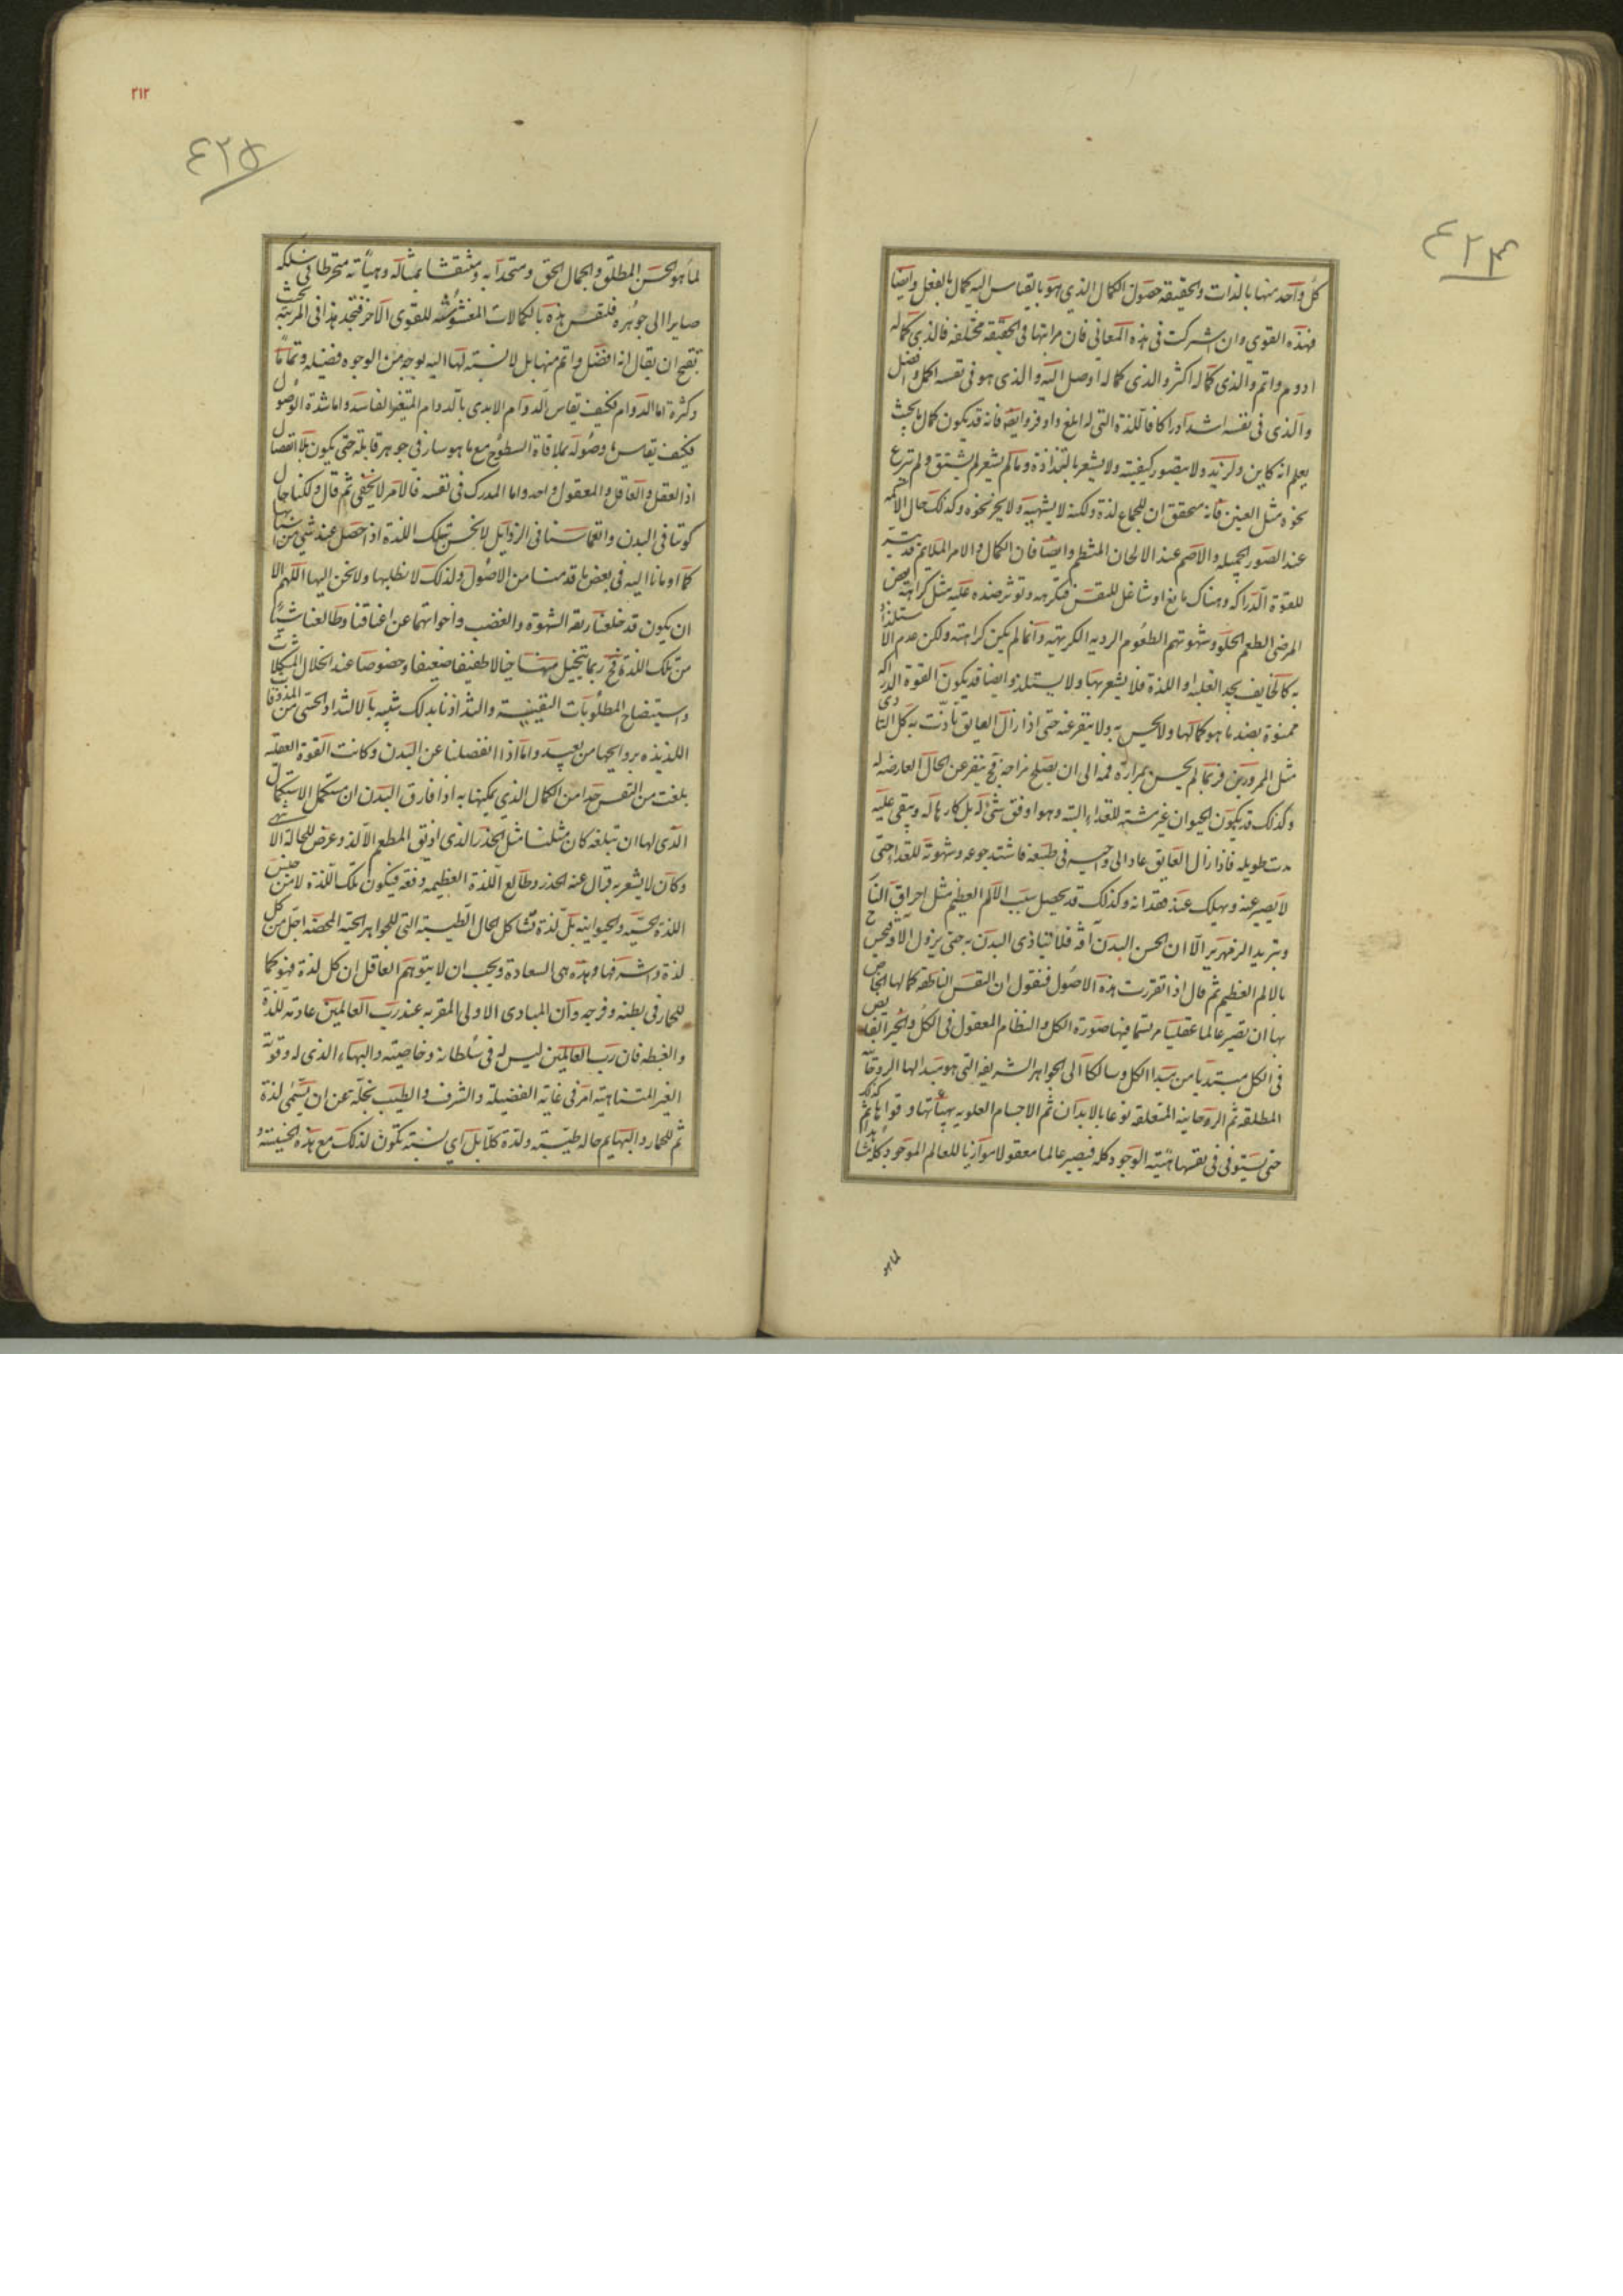 ٤٢٤
كل واحد منها بالذات والحقيقه حصول الكمال الذى هو بالقياس اليه كمال بالفعل وايضا
فهذه القوى وان اشتركت فى هذه المعانى فان مراتبها فى الحقيقه مختلفه فالذى كماله
ادوم واتم والذى كماله اكثر والذى كماله اوصل اليه والذى هو فى نفسه اكمل وافضل
والذى فى نفسه اشد ادراكا فاللذة التى له ابلغ واوفر وايضه فانه قد يكون كمال ما بحيث
يعلم انه كاين ولذيذ ولا يتصور كيفيته ولا يشعر بالتذاذه وما لم يشعر لم يشتق ولم ينزع
نحوه مثل العنين فانه متحقق ان للجماع لذة ولكنه لا يشتهيه ولا يحن نحوه وكذلك حال الاكمه
عند الصور الجميله والاصم عند الالحان المنتظم وايضا فان الكمال والامر الملايم قد يتيسر
للقوة الدراكه وهناك مانع او شاغل للنفس فتكرهه وتوثر ضده عليه مثل كراهة بعض
المرضى الطعم الحلو وشهوتهم الطعوم الرديه الكريهيه وانما لم يكن كراهته ولكن عدم الاستلذاذ
به كالخايف يجد الغلبه او اللذة فلا يشعر بها ولا يستلذ وايضا قد يكون القوة الدراكه
ممنوة بضد ما هو كمالها ولا يحس به ولا ينفر عنه حتى اذا زال العايق تاذت به كل التاذى
مثل الممرورين فربما لم يحس بمرارة فمه الى ان يصلح مزاجه فح ينفر عن الحال العارضه له
وكذلك قد يكون الحيوان غير مشته للغذاء البتة وهو اوفق شئ له بل كارها له ويبقى عليه
مدت طويله فاذا زال العايق عاد الى واجبه فى طبعه فاشتد جوعه وشهوته للغذا حتى
لا يصبر عنه ويهلك عند فقدانه وكذلك قد يحصل سبب الالم العظيم مثل احراق النار
وتبريد الزمهرير الا ان الحس البدن آفه فلا يتاذى البدن به حتى يزول الافه فيحس ح
بالالم العظيم ثم قال اذا تقررت هذه الاصول فنقول ان النفس الناطقه كمالها الخاص
بها ان تصير عالما عقليا مرتسما فيها صورة الكل والنظام المعقول فى الكل والخير الفايض
فى الكل مبتديا من مبدا الكل وسالكا الى الجواهر الشريفه التى هو مبدا لها الروحانيه
المطلقه ثم الروحانيه المتعلقه نوعا بالابدان ثم الاجسام العلويه بهيأتها وقواها ثم كذلك
حتى يستوفى فى نفسها هيئة الوجود كله فيصير عالما معقولا موازنا للعالم الموجود كله مشاهدا
لما هو
٢١٢
٤٢٥
لما هو الحسن المطلق والجمال الحق ومتحدا به ومنتقشا بمثاله وهيأته منخرطا فى سلكه
صايرا الى جوهره فلتقس هذه بالكمالات المعشوشه للقوى الآخر فتجد هذا فى المرتبة بحيث
تقبح ان يقال انه افضل واتم منها بل لا نسبته لها اليه بوجه من الوجوه فضيله وتماما
وكثرة اما الدوام فكيف يقاس الدوام الابدى بالدوام المتغير الفاسد واما شدة الوصول
فكيف يقاس ما وصوله بملاقاة السطوح مع ما هو سار فى جوهر قابله حتى يكون بلا انفصال
اذ العقل والعاقل والمعقول واحد واما المدرك فى نفسه فالامر لا يخفى ثم قال ولكنا حال
كوننا فى البدن وانغماسنا فى الرذايل لا نحس بتلك اللذة اذا حصل عند شئ من اسبابها
كما اومانا اليه فى بعض ما قدمنا من الاصول ولذلك لا نطلبها ولا نحن اليها اللهم الا
ان يكون قد خلعنا ربقه الشهوة والغضب واخواتهما عن اعناقنا وطالعنا شيئا
من تلك اللذة فح ربما نتخيل منها خيالا طفيفا ضعيفا وخصوصا عند انحلال المشكلات
واستيضاح المطلوبات اليقينية والتذاذنا بذلك شبيه بالالتذاذ الحسى من المذوقات
اللذيذه بروايحها من بعيد واما اذا انفصلنا عن البدن وكانت القوة العقليه
بلغت من النفس حدا من الكمال الذى يمكنها به اذا فارق البدن ان تستكمل الاستكمال
الذى لها ان تبلغه كان مثلنا مثل الخدر الذى اذيق المطعم الالذ وعرض للحالة الاشهى
وكان لا يشعر به فزال عنه الخدر وطالع اللذة العظيمه دفعه فيكون تلك اللذة لا من جنس
اللذة الحسيه والحيوانيه بل لذة تشاكل الحال الطيبة التى للجواهر الحية المحضه اجل من كل
لذة واشرفها وهذه هى السعادة ويجب ان لا يتوهم العاقل ان كل لذة فهو كما
للحمار فى بطنه وفرجه وان المبادى الاولى المقربه عند رب العالمين عادمه للذة
والغبطه فان رب العالمين ليس له فى سلطانه وخاصيته والبهاء الذى له وقوته
الغير المتناهيه امر فى غاية الفضيلة والشرف والطيب نجله عن ان يسمى لذة
ثم للحمار والبهايم حاله طيبته ولذة كلا بل اى نسبة تكون لذلك مع هذه الخسيسة